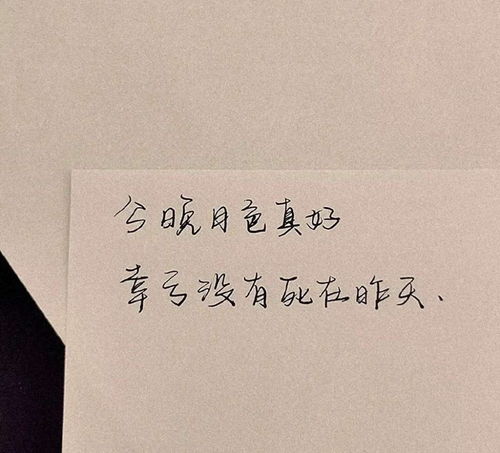 今晚月色真好
幸亏没有死在昨天、